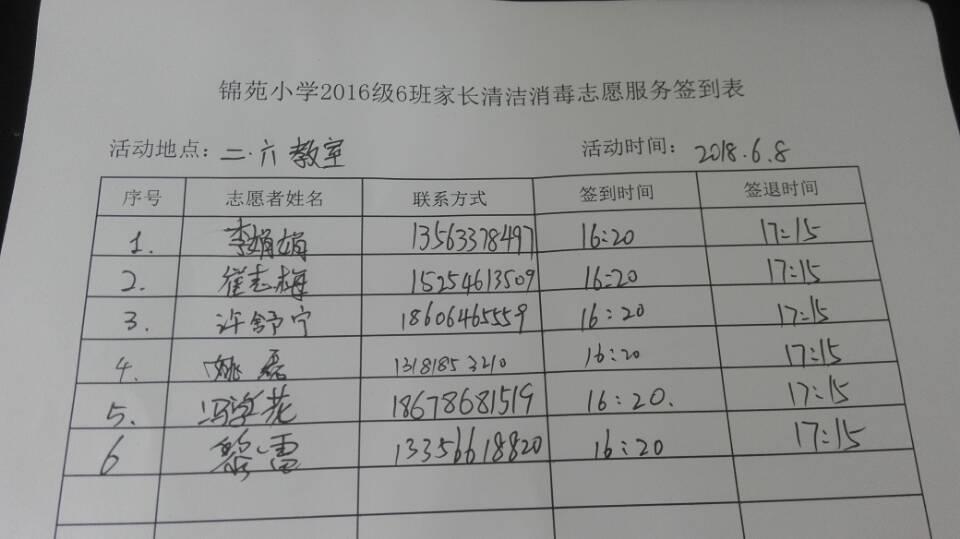 锦苑小学2016级6班家长清洁消毒志愿服务签到表
活动地点：二·六教室 活动时间：2018.6.8
序号 志愿者姓名 联系方式 签到时间 签退时间
1. 李娟娟 13563378497 16:20 17:15
2. 崔志梅 15254613509 16:20 17:15
3. 许舒宁 18606465559 16:20 17:15
4. 姚磊 13181853210 16:20 17:15
5. 冯学花 18678681519 16:20. 17:15
6 黎雷 13356618820 16:20 17:15